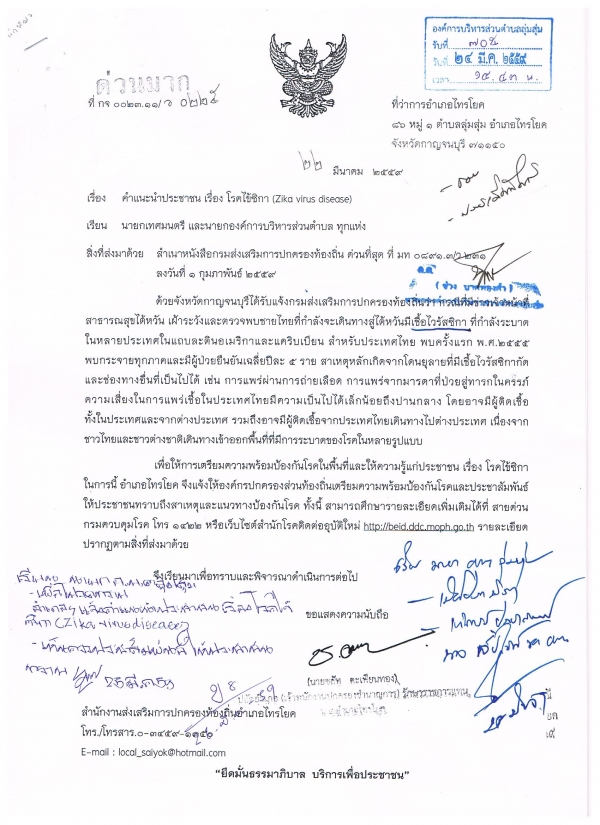 องค์การบริหารส่วนตำบลลุ่มสุ่ม
รับที่ ๗๐๕
วันที่ ๒๔ มี.ค. ๒๕๕๙
เวลา ๑๔.๔๓ น.
ด่วนมาก
ที่ กจ ๐๐๒๓.๑๑/ว ๐๒๒๕
ที่ว่าการอำเภอไทรโยค
๘๖ หมู่ ๑ ตำบลลุ่มสุ่ม อำเภอไทรโยค
จังหวัดกาญจนบุรี ๗๑๑๕๐
๒๒ มีนาคม ๒๕๕๙
เรื่อง คำแนะนำประชาชน เรื่อง โรคไข้ซิกา (Zika virus disease)
เรียน นายกเทศมนตรี และนายกองค์การบริหารส่วนตำบล ทุกแห่ง
สิ่งที่ส่งมาด้วย สำเนาหนังสือกรมส่งเสริมการปกครองท้องถิ่น ด่วนที่สุด ที่ มท ๐๘๙๑.๓/ว ๒๓๑
ลงวันที่ ๑ กุมภาพันธ์ ๒๕๕๙
ด้วยจังหวัดกาญจนบุรีได้รับแจ้งกรมส่งเสริมการปกครองท้องถิ่นว่า กรณีที่มีข่าวเจ้าหน้าที่
สาธารณสุขไต้หวัน เฝ้าระวังและตรวจพบชายไทยที่กำลังจะเดินทางสู่ไต้หวันมีเชื้อไวรัสซิกา ที่กำลังระบาด
ในหลายประเทศในแถบละตินอเมริกาและแคริบเบียน สำหรับประเทศไทย พบครั้งแรก พ.ศ.๒๕๕๕
พบกระจายทุกภาคและมีผู้ป่วยยืนยันเฉลี่ยปีละ ๕ ราย สาเหตุหลักเกิดจากโดนยุงลายที่มีเชื้อไวรัสซิกากัด
และช่องทางอื่นที่เป็นไปได้ เช่น การแพร่ผ่านการถ่ายเลือด การแพร่จากมารดาที่ป่วยสู่ทารกในครรภ์
ความเสี่ยงในการแพร่เชื้อในประเทศไทยมีความเป็นไปได้เล็กน้อยถึงปานกลาง โดยอาจมีผู้ติดเชื้อ
ทั้งในประเทศและจากต่างประเทศ รวมถึงอาจมีผู้ติดเชื้อจากประเทศไทยเดินทางไปต่างประเทศ เนื่องจาก
ชาวไทยและชาวต่างชาติเดินทางเข้าออกพื้นที่ที่มีการระบาดของโรคในหลายรูปแบบ
เพื่อให้การเตรียมความพร้อมป้องกันโรคในพื้นที่และให้ความรู้แก่ประชาชน เรื่อง โรคไข้ซิกา
ในการนี้ อำเภอไทรโยค จึงแจ้งให้องค์กรปกครองส่วนท้องถิ่นเตรียมความพร้อมป้องกันโรคและประชาสัมพันธ์
ให้ประชาชนทราบถึงสาเหตุและแนวทางป้องกันโรค ทั้งนี้ สามารถศึกษารายละเอียดเพิ่มเติมได้ที่ สายด่วน
กรมควบคุมโรค โทร ๑๔๒๒ หรือเว็บไซต์สำนักโรคติดต่ออุบัติใหม่ http://beid.ddc.moph.go.th รายละเอียด
ปรากฏตามสิ่งที่ส่งมาด้วย
จึงเรียนมาเพื่อทราบและพิจารณาดำเนินการต่อไป
(Zika virus disease)
ขอแสดงความนับถือ
สำนักงานส่งเสริมการปกครองท้องถิ่นอำเภอไทรโยค
โทร./โทรสาร.๐-๓๔๕๙-๑๑๔๐
E-mail : local_saiyok@hotmail.com
"ยึดมั่นธรรมาภิบาล บริการเพื่อประชาชน"